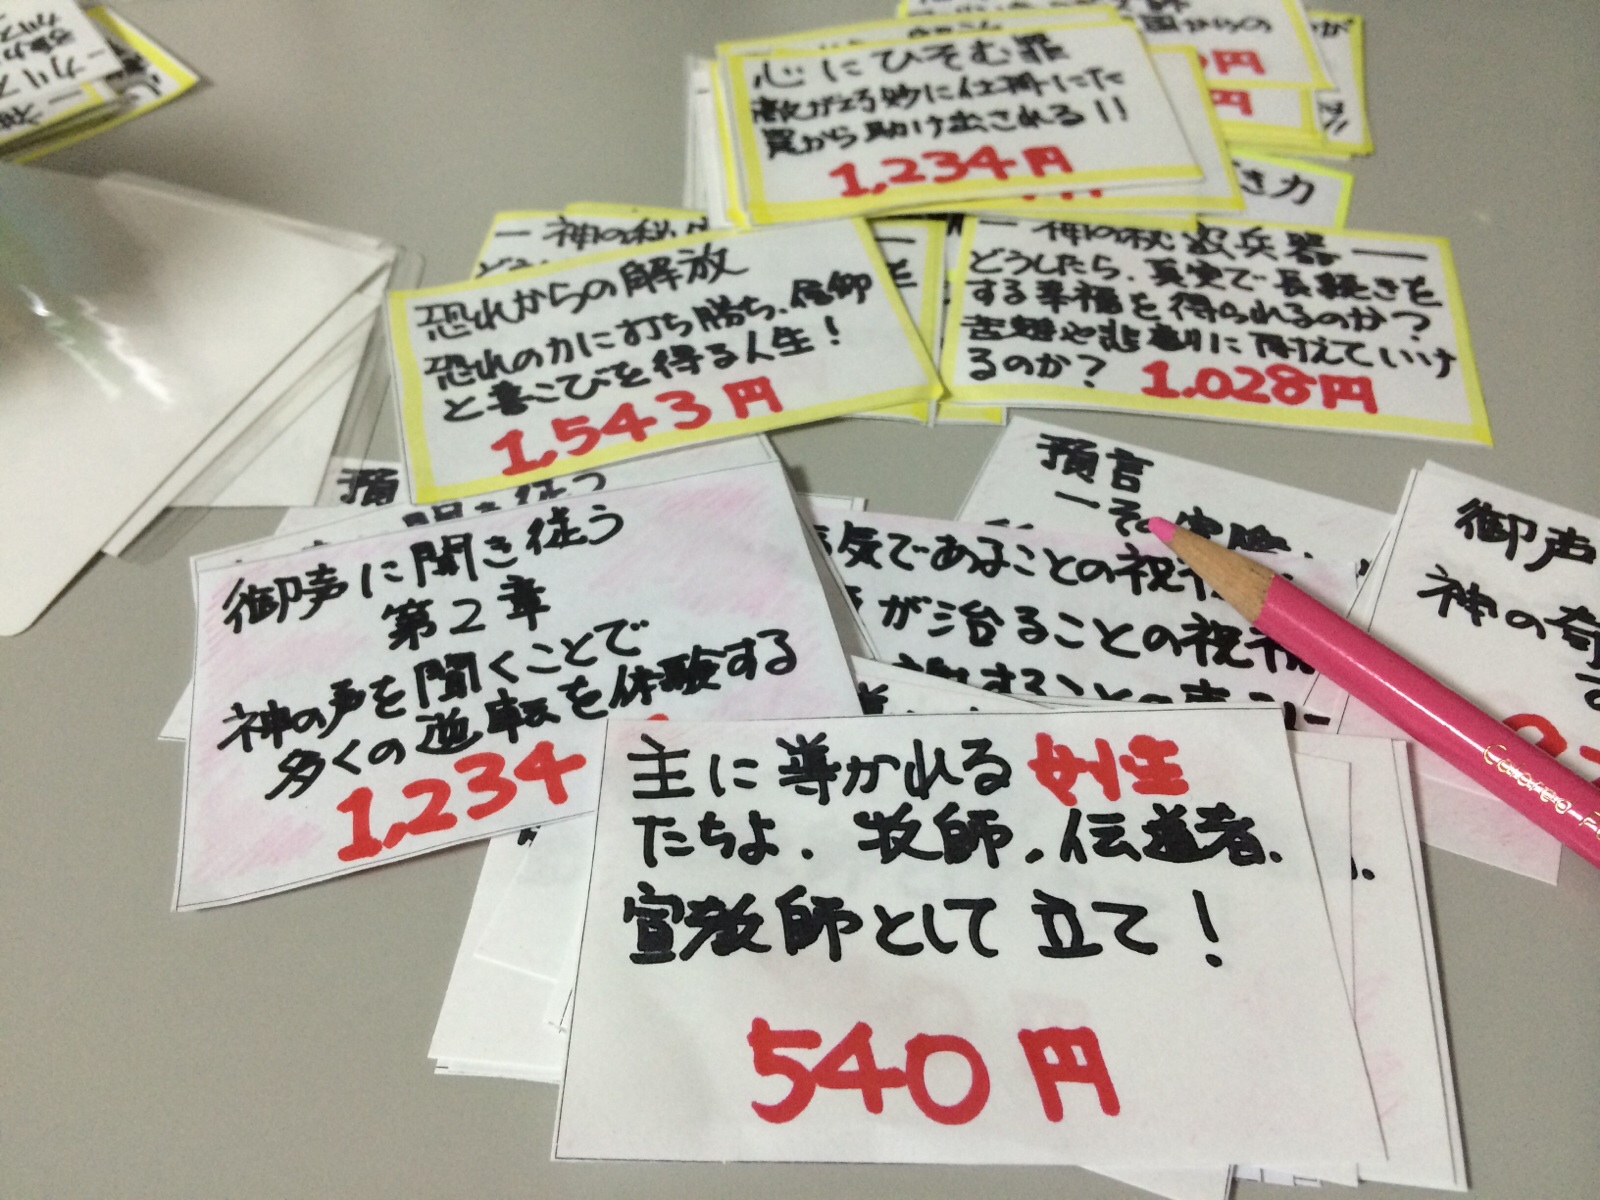 心にひそむ罪
敵が巧妙に仕掛けた
罠から助け出される!!
1,234円
円
き力
恐れからの解放
恐れの力に打ち勝ち、信仰
と喜こびを得る人生!
1,543円
― 神の秘密兵器 ―
どうしたら、真実で長続きを
する幸福を得られるのか?
苦難や悲劇に耐えていけ
るのか?
1.028円
預
聞き従う
御声に聞き従う
第2章
神の声を聞くことで
多くの逆転を体験する
1,234
預言
気であることの祝
が治ることの祝福
することの
御声
神の奇
主に導かれる女性
たちよ、牧師、伝道者、
宣教師として立て!
540円
Colored